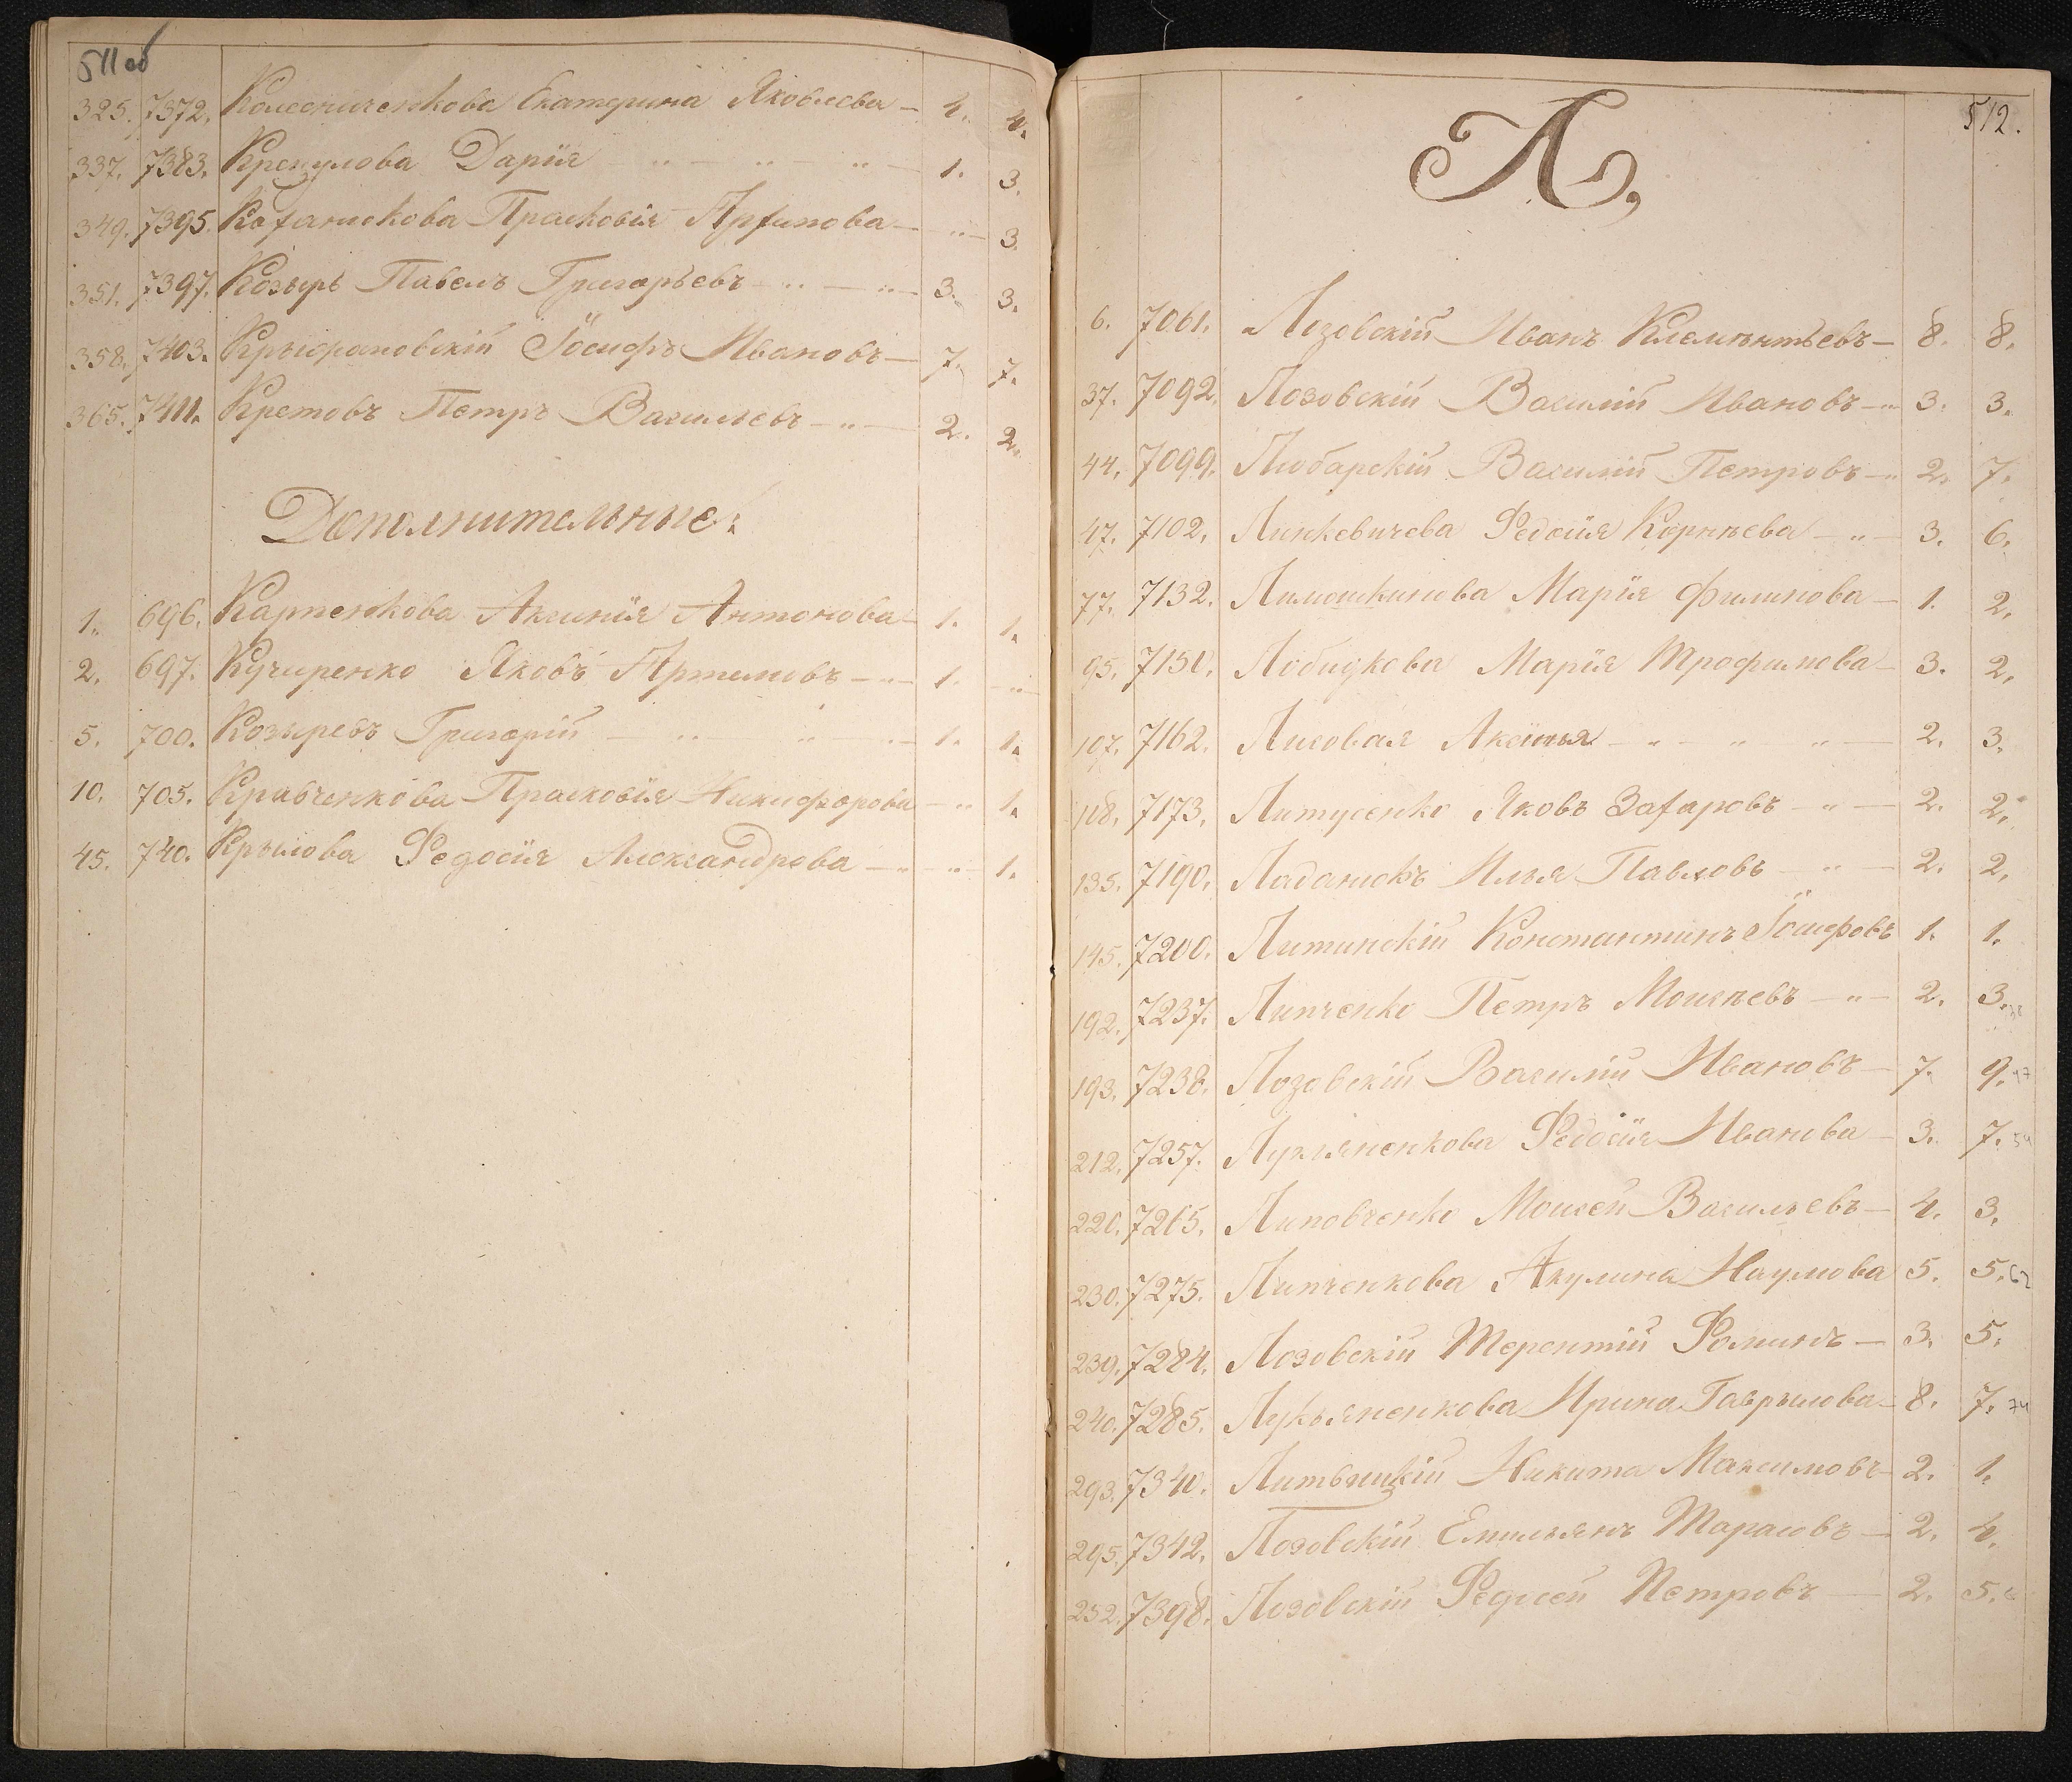 511 об
325. 7372. Колесниченкова Екатерина Яковлева — 4. 4.
337. 7383. Крекулова Дарія " — " " — 1. 3.
349. 7395. Каханюкова Прасковія Архипова — " — 3.
351. 7397. Козырь Павелъ Григорьевъ — " — " — 3. 3.
358. 7403. Крыфановскій Іосифъ Ивановъ — 7. 7.
365. 7411. Кретовъ Петръ Васильевъ — " — 2. 2.
Дополнительные:
1. 696. Карпенкова Аксинія Антонова — 1. 1.
2. 697. Кучиренко Яковъ Артемовъ — " — 1. — " —
5. 700. Козыревъ Григорій — " " " — 1. 1.
10. 705. Кравченкова Прасковія Никифорова — " 1.
45. 740. Крылова Федосія Александрова — " — " — 1.
512.
Л,
6. 7061. Лозовскій Иванъ Клементьевъ — 8. 8.
37. 7092. Лозовскій Василій Ивановъ — " 3. 3.
44. 7099. Любарскій Василій Петровъ — " 2. 7.
47. 7102. Линкевичева Федосія Корнѣева — " — 3. 6.
77. 7132. Лимошкинова Марія Филипова — 1. 2.
95. 7150. Лобидкова Марія Трофимова — 3. 2.
107. 7162. Лисовая Аксінья — " — " " — 2. 3.
118. 7173. Литусенко Яковъ Захаровъ — " — 2. 2.
135. 7190. Ладанюкъ Илья Павловъ — " — 2. 2.
145. 7200. Литинскій Константинъ Іосифовъ 1. 1.
192. 7237. Липченко Петръ Моисѣевъ — " — 2. 3.
193. 7238. Лозовскій Василій Ивановъ — 7. 9.
212. 7257. Лукяненкова Федосія Иванова — 3. 7.
220. 7265. Липовченко Моисей Васильевъ — 4. 3.
230. 7275. Липченкова Акулина Наумова 5. 5. 62
239. 7284. Лозовскій Терентій Фоминъ — 3. 5.
240. 7285. Лукьяненкова Ирина Гаврылова — 8. 7. 74
293. 7340. Литвицкій Никита Максимовъ — 2. 1.
295. 7342. Лозовскій Емильянъ Тарасовъ — 2. 4.
252. 7398. Лозовскій Федосей Петровъ — 2. 5.